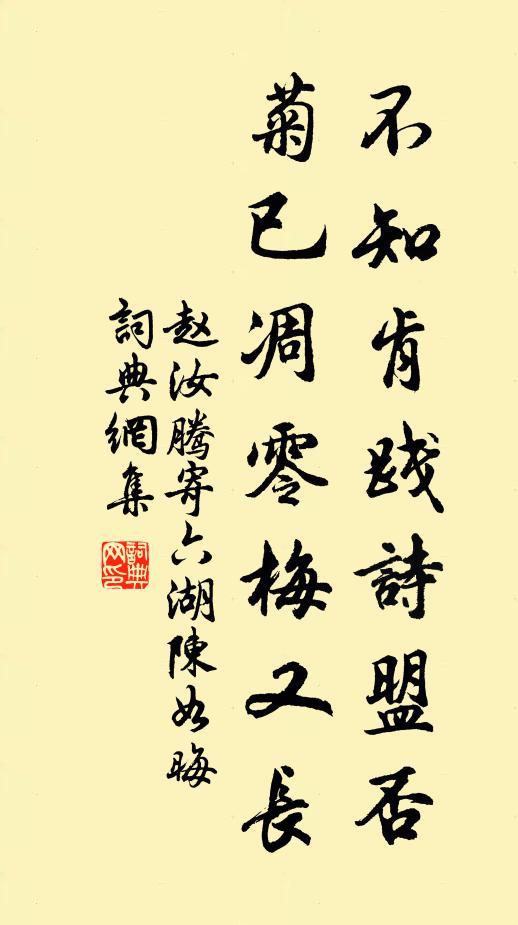 不知肯践詩盟否
菊已凋零梅又長
赵汝腾寄六湖陳如晦
詞典網集
詞典网印